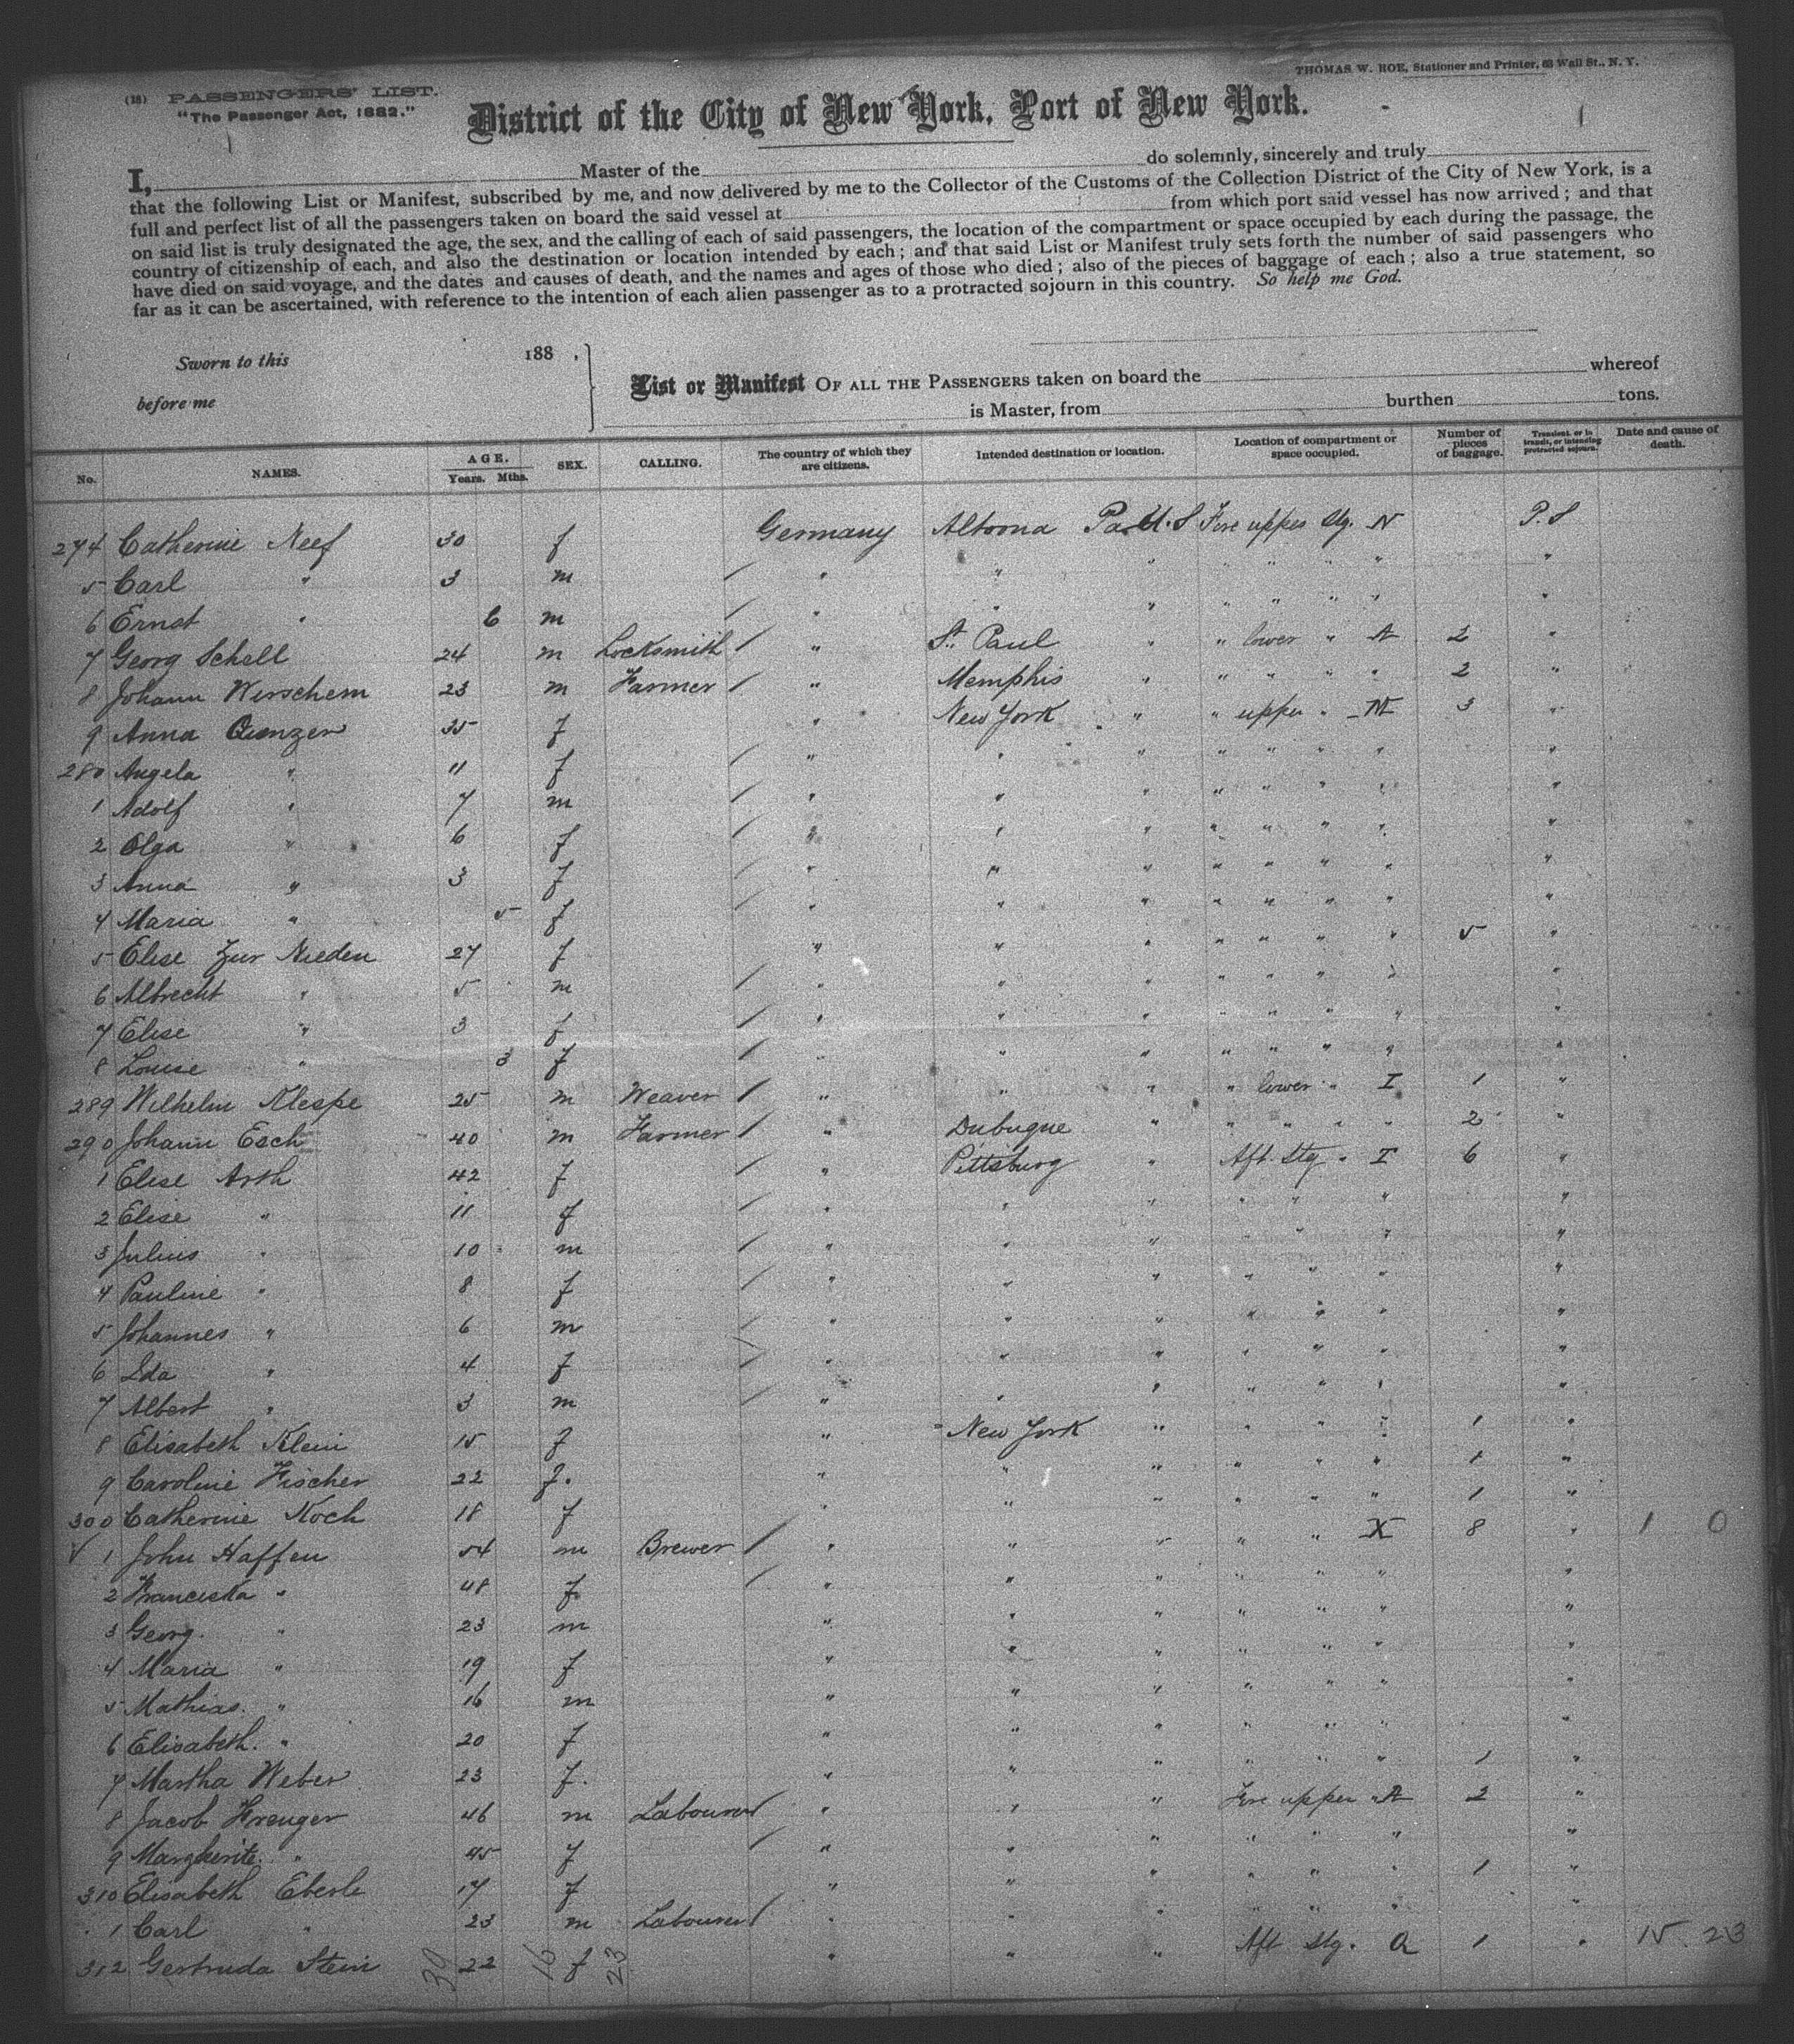 THOMAS W. ROE, Stationer and Printer, 63 Wall St., N. Y.
(18) PASSENGERS' LIST.
"The Passenger Act, 1882."
District of the City of New York, Port of New York.
I, Master of the do solemnly, sincerely and truly
that the following List or Manifest, subscribed by me, and now delivered by me to the Collector of the Customs of the Collection District of the City of New York, is a
full and perfect list of all the passengers taken on board the said vessel at from which port said vessel has now arrived; and that
on said list is truly designated the age, the sex, and the calling of each of said passengers, the location of the compartment or space occupied by each during the passage, the
country of citizenship of each, and also the destination or location intended by each; and that said List or Manifest truly sets forth the number of said passengers who
have died on said voyage, and the dates and causes of death, and the names and ages of those who died; also of the pieces of baggage of each; also a true statement, so
far as it can be ascertained, with reference to the intention of each alien passenger as to a protracted sojourn in this country. So help me God.
Sworn to this 188 ,
before me
List or Manifest OF ALL THE PASSENGERS taken on board the whereof
is Master, from burthen tons.
No. NAMES. AGE. Years. Mths. SEX. CALLING. The country of which they are citizens. Intended destination or location. Location of compartment or space occupied. Number of pieces of baggage. Transient, or in transit, or intending protracted sojourn. Date and cause of death.
274 Catherine Neef 30 f Germany Altoona Pa U.S Fore upper Stg. N P.S
5 Carl " 3 m / " " " " " " " "
6 Ernst " 6 m / " " " " " " " "
7 Georg Schell 24 m Locksmith / " St. Paul " " lower " A 2 "
8 Johann Wirschem 23 m Farmer / " Memphis " " " " " 2 "
9 Anna Quenzer 35 f " New York " " upper " N 3 "
280 Angela " 11 f / " " " " " " " "
1 Adolf " 7 m / " " " " " " " "
2 Olga " 6 f / " " " " " " " "
3 Anna " 3 f / " " " " " " " "
4 Maria " 5 f / " " " " " " " "
5 Elise Zur Nieden 27 f " " " " " " " 5 "
6 Albrecht " 5 m / " " " " " " " "
7 Elise " 3 f / " " " " " " " "
8 Louise " 3 f / " " " " " " " "
289 Wilhelm Klespe 25 m Weaver / " " " " lower " I 1 "
290 Johann Esch 40 m Farmer / " Dubuque " " " " " 2 "
1 Elise Arth 42 f / " Pittsburg " Aft Stg " I 6 "
2 Elise " 11 f / " " " " " " "
3 Julius " 10 m / " " " " " " "
4 Pauline " 8 f / " " " " " " "
5 Johannes " 6 m / " " " " " " "
6 Ida " 4 f / " " " " " " "
7 Albert " 3 m / " " " " " " "
8 Elisabeth Klein 15 f " New York " " " " 1 "
9 Caroline Fischer 22 f. " " " " " " 1 "
300 Catherine Koch 18 f " " " " " " 1 "
√ 1 John Haffen 54 m Brewer / " " " " " X 8 " 1 0
2 Franciska " 48 f / " " " " " " "
3 Georg. " 23 m " " " " " " "
4 Maria " 19 f " " " " " " "
5 Mathias. " 16 m " " " " " " "
6 Elisabeth. " 20 f " " " " " " "
7 Martha Weber 23 f. " " " " " " 1 "
8 Jacob Krenger 46 m Labourer / " " " Fore upper " A 2 "
9 Margherite. " 45 f / " " " " " " "
310 Elisabeth Eberle 17 f " " " " " " 1 "
1 Carl " 23 m Labourer / " " " " " " "
312 Gertruda Stein 22 f " " " Aft Stg. Q 1 " 15 23
39 16 23